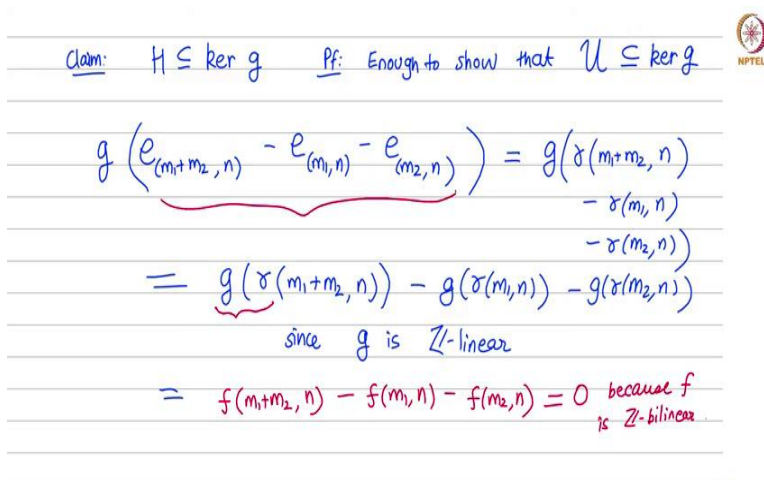 Claim: H ⊆ ker g Pf: Enough to show that U ⊆ ker g
NPTEL
g (e_(m₁+m₂, n) - e_(m₁, n) - e_(m₂, n)) = g(γ(m₁+m₂, n)
- γ(m₁, n)
- γ(m₂, n))
= g(γ(m₁+m₂, n)) - g(γ(m₁, n)) - g(γ(m₂, n))
since g is ℤ-linear
= f(m₁+m₂, n) - f(m₁, n) - f(m₂, n) = 0 because f
is ℤ-bilinear.